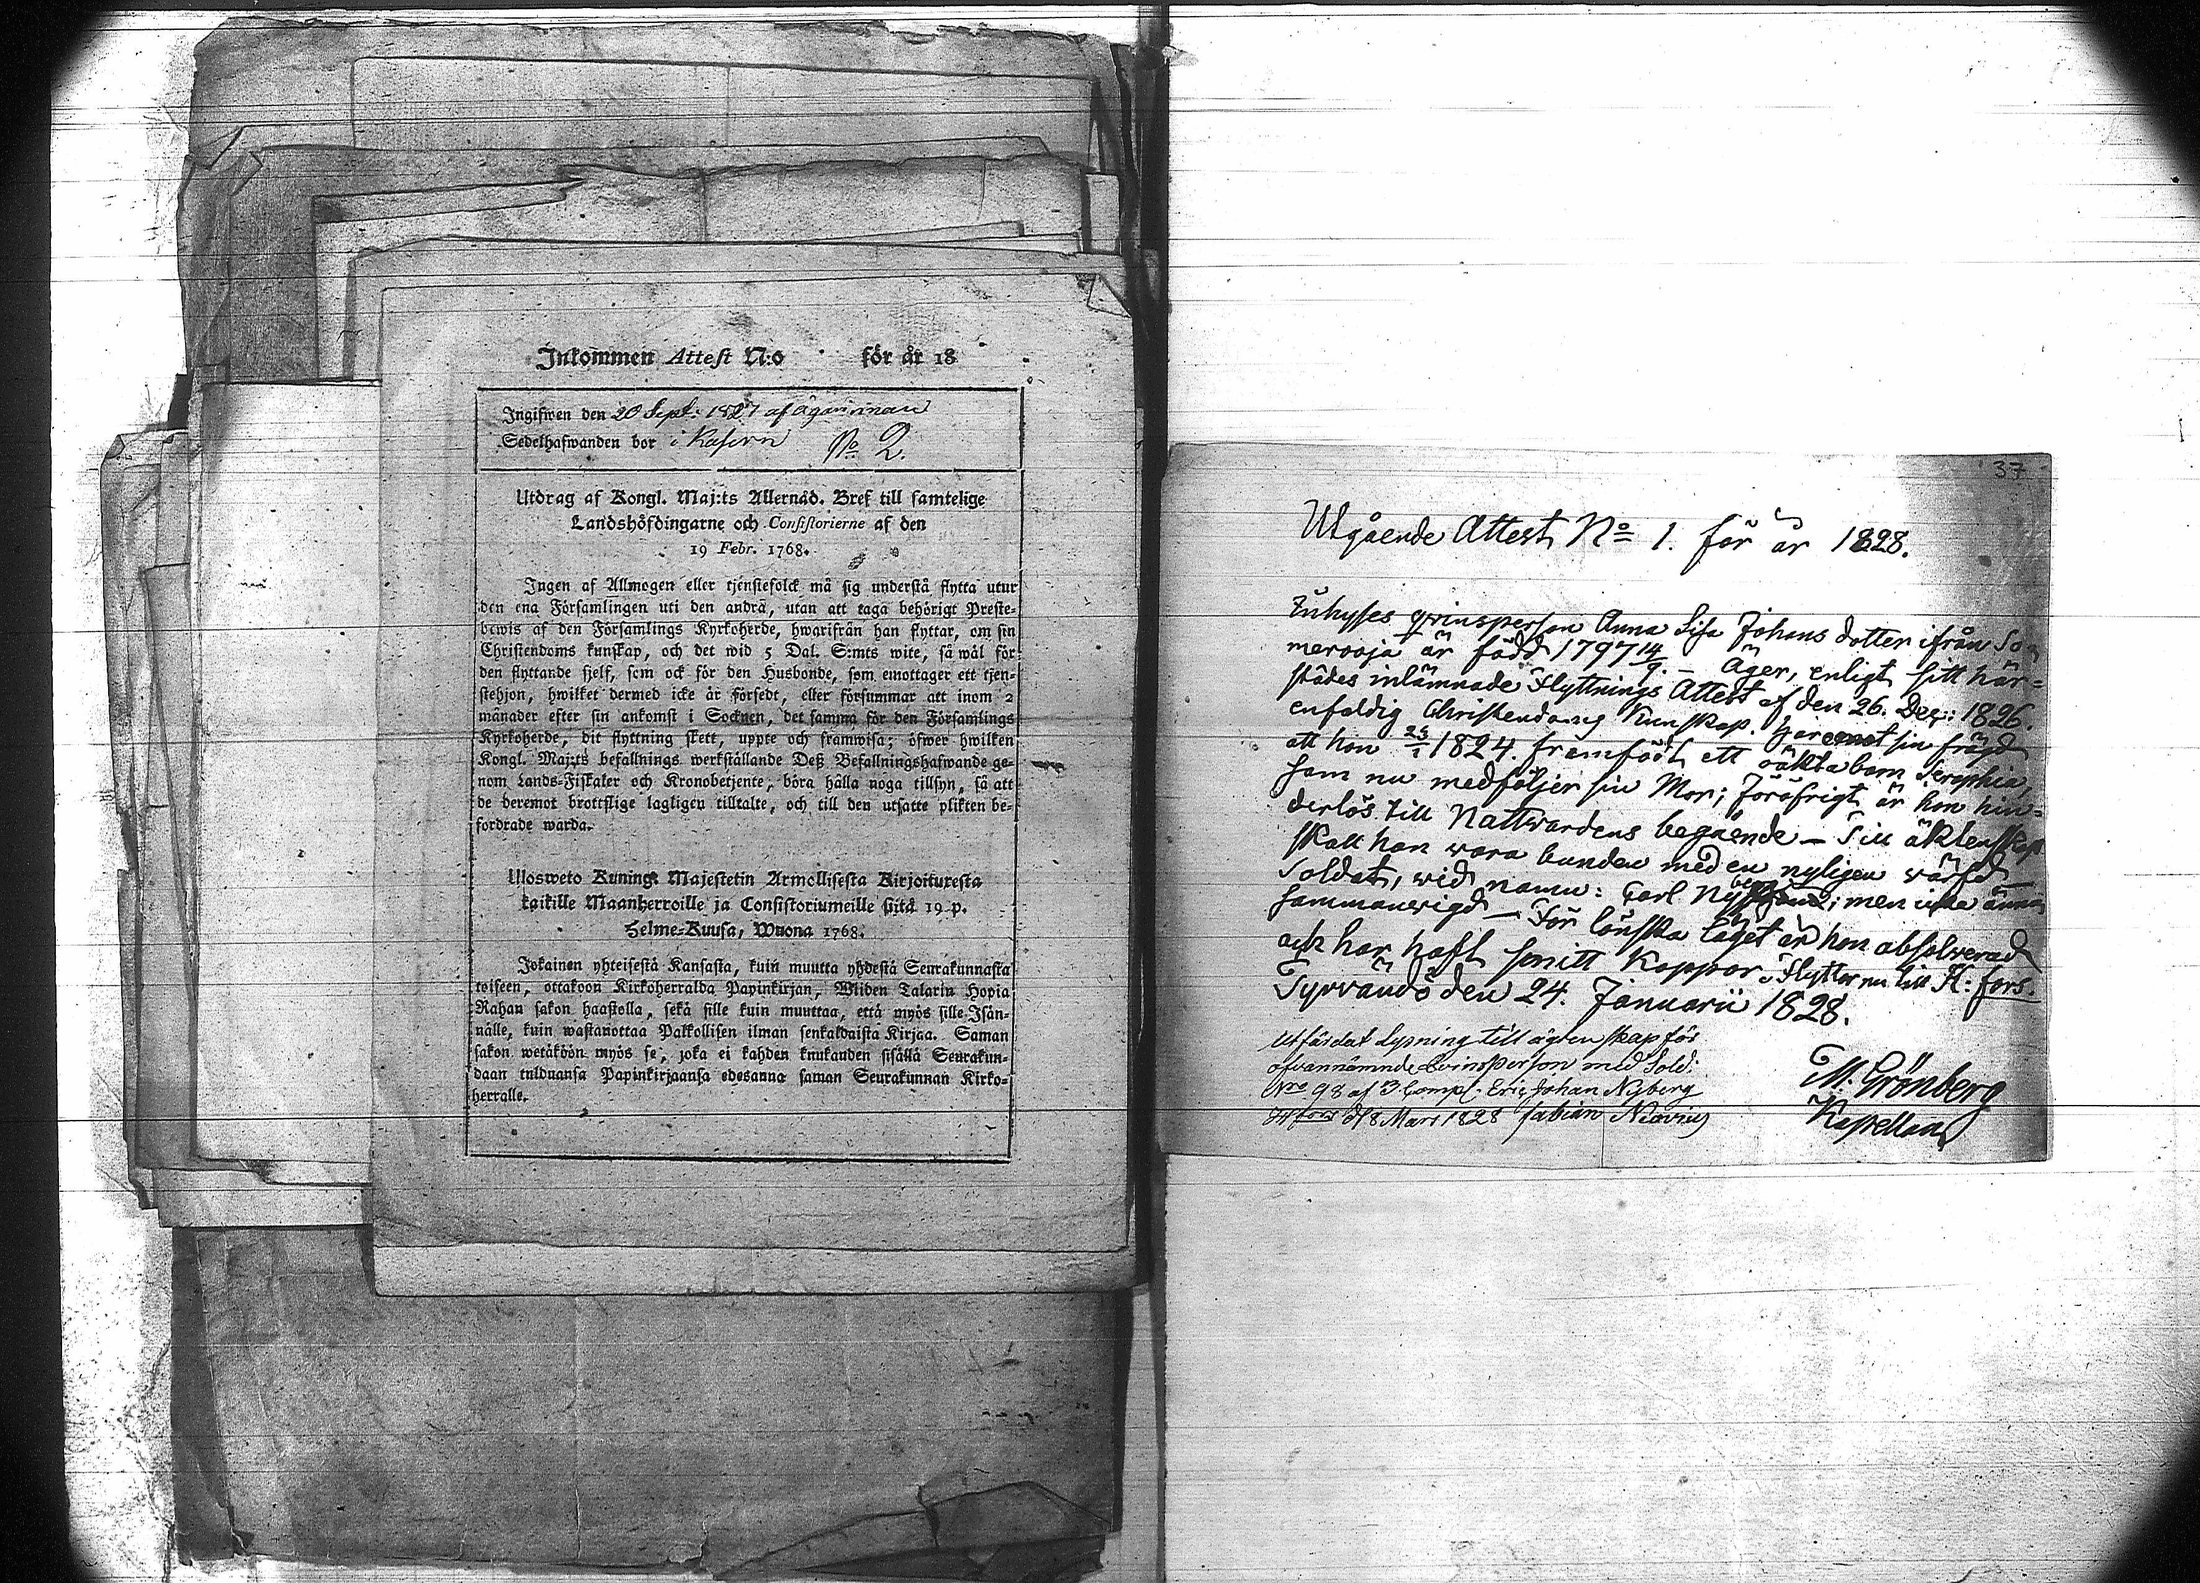 Inkommen Attest N:o för år 18
Ingifwen den 20 Sept: 1827 af ägarinnan
Sedelhafwanden bor i Kasern No 2.
Utdrag af Kongl. Maj:ts Allernåd. Bref till samtelige
Landshöfdingarne och Consistorierne af den
19 Febr. 1768.
Ingen af Allmogen eller tjenstefolck må sig understå flytta utur
den ena Församlingen uti den andra, utan att taga behörigt Preste-
bewis af den Församlings Kyrkoherde, hwarifrån han flyttar, om sin
Christendoms kunskap, och det wid 5 Dal. S:mts wite, så wäl för
den flyttande sjelf, som ock för den Husbonde, som emottager ett tjen-
stehjon, hwilket dermed icke är försedt, eller försummar att inom 2
månader efter sin ankomst i Socknen, det samma för den Församlings
Kyrkoherde, dit flyttning skett, uppte och framwisa; öfwer hwilken
Kongl. Maj:ts befallnings werkställande Deß Befallningshafwande ge-
nom Lands-Fiskaler och Kronobetjente, böra hålla noga tillsyn, så att
de deremot brottslige lagligen tilltalte, och till den utsatte plikten be-
fordrade warda.
Ulosweto Kuning: Majestetin Armollisesta Kirjoituresta
kaikille Maanherroille ja Consistoriumeille siitä 19 p.
Helme-Kuusa, Wuona 1768.
Jokainen yhteisestä Kansasta, kuin muutta yhdestä Seurakunnasta
toiseen, ottakoon Kirkoherralda Papinkirjan, Wiiden Talarin Hopia
Rahan sakon haastolla, sekä sille kuin muuttaa, että myös sille Isän-
nälle, kuin wastanottaa Palkollisen ilman senkaldaista Kirjaa. Saman
sakon wetäköön myös se, joka ei kahden kuukauden sisällä Seurakun-
daan tulduansa Papinkirjaansa edesanna saman Seurakunnan Kirko-
herralle.
37
Utgående Attest No 1. för år 1828.
Inhyses qvinsperson Anna Lisa Johans dotter ifrån So
merooja är född 1797 14/9. – Äger, enligt sitt här=
städes inlämnade Flyttnings Attest af den 26. Dec: 1826.
enfaldig Christendoms Kunskap. hjaremot sin frägd
att hon 23/1 1824. framfödt ett oäkta barn Seraphia,
som nu medföljer sin Mor; Föröfrigt är hon hin=
derlös till Nattwardens begående – Till äktenskap
skall hon wara bunden med en nyligen värfd
Soldat, wid namn: Carl Nyberg; men icke ännu
sammanwigd – För lönska läget är hon absolverad
och har haft smitt Koppor. Flytter nu till H:fors.
Tyrvändö den 24. Januarii 1828.
M. Grönberg
Kapellan
Utfärdat Lysning till ägtenskap för
ofvannämnde Qvinsperson med Sold:
Nro 98 af 3 Comp. Eric Johan Nyberg
H:fors d 8 Mars 1828 Fabian Neovius